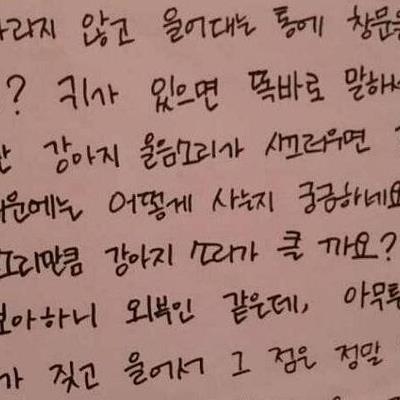 바라지 않고 울어대는 통에 창문을
? 귀가 있으면 똑바로 말하세
강아지 울음소리가 시끄러우면
어떻게 사는지 궁금하네요
소리만큼 강아지 소리가 클 까요?
보아하니 외부인 같은데, 아무튼
가 짖고 울어서 그 점은 정말